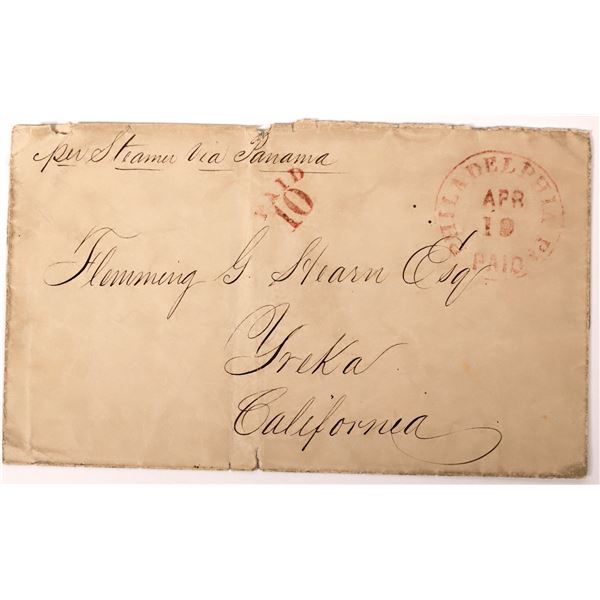 per Steamer via Panama
PAID
10
PHILADELPHIA Pa
APR
19
PAID
Flemming G. Hearn Esq
Yreka
California